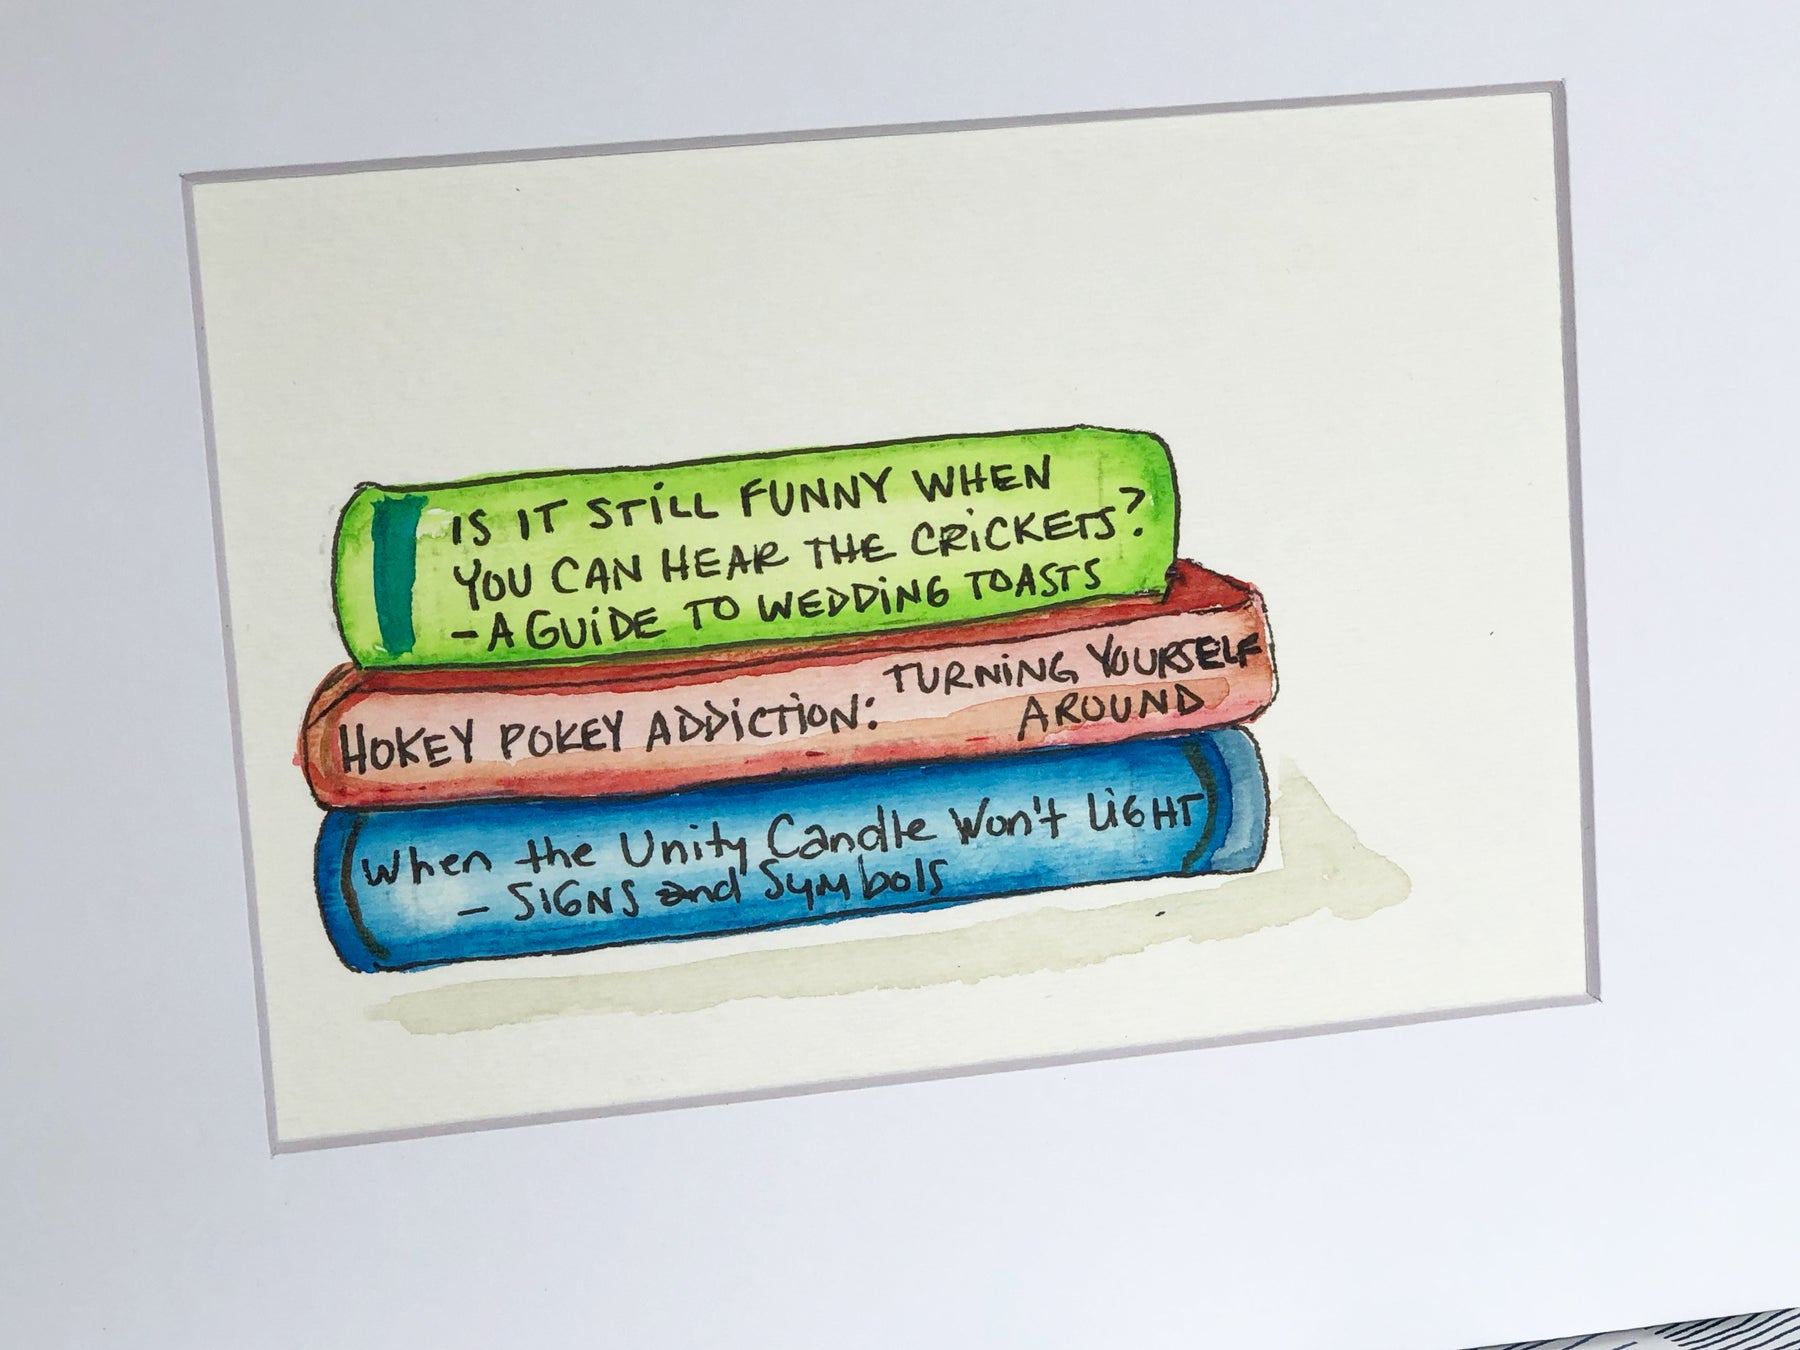 IS IT STILL FUNNY WHEN
YOU CAN HEAR THE CRICKETS?
- A GUIDE TO WEDDING TOASTS
HOKEY POKEY ADDICTION: TURNING YOURSELF
AROUND
When the Unity Candle Won't LIGHT
- SIGNS and Symbols